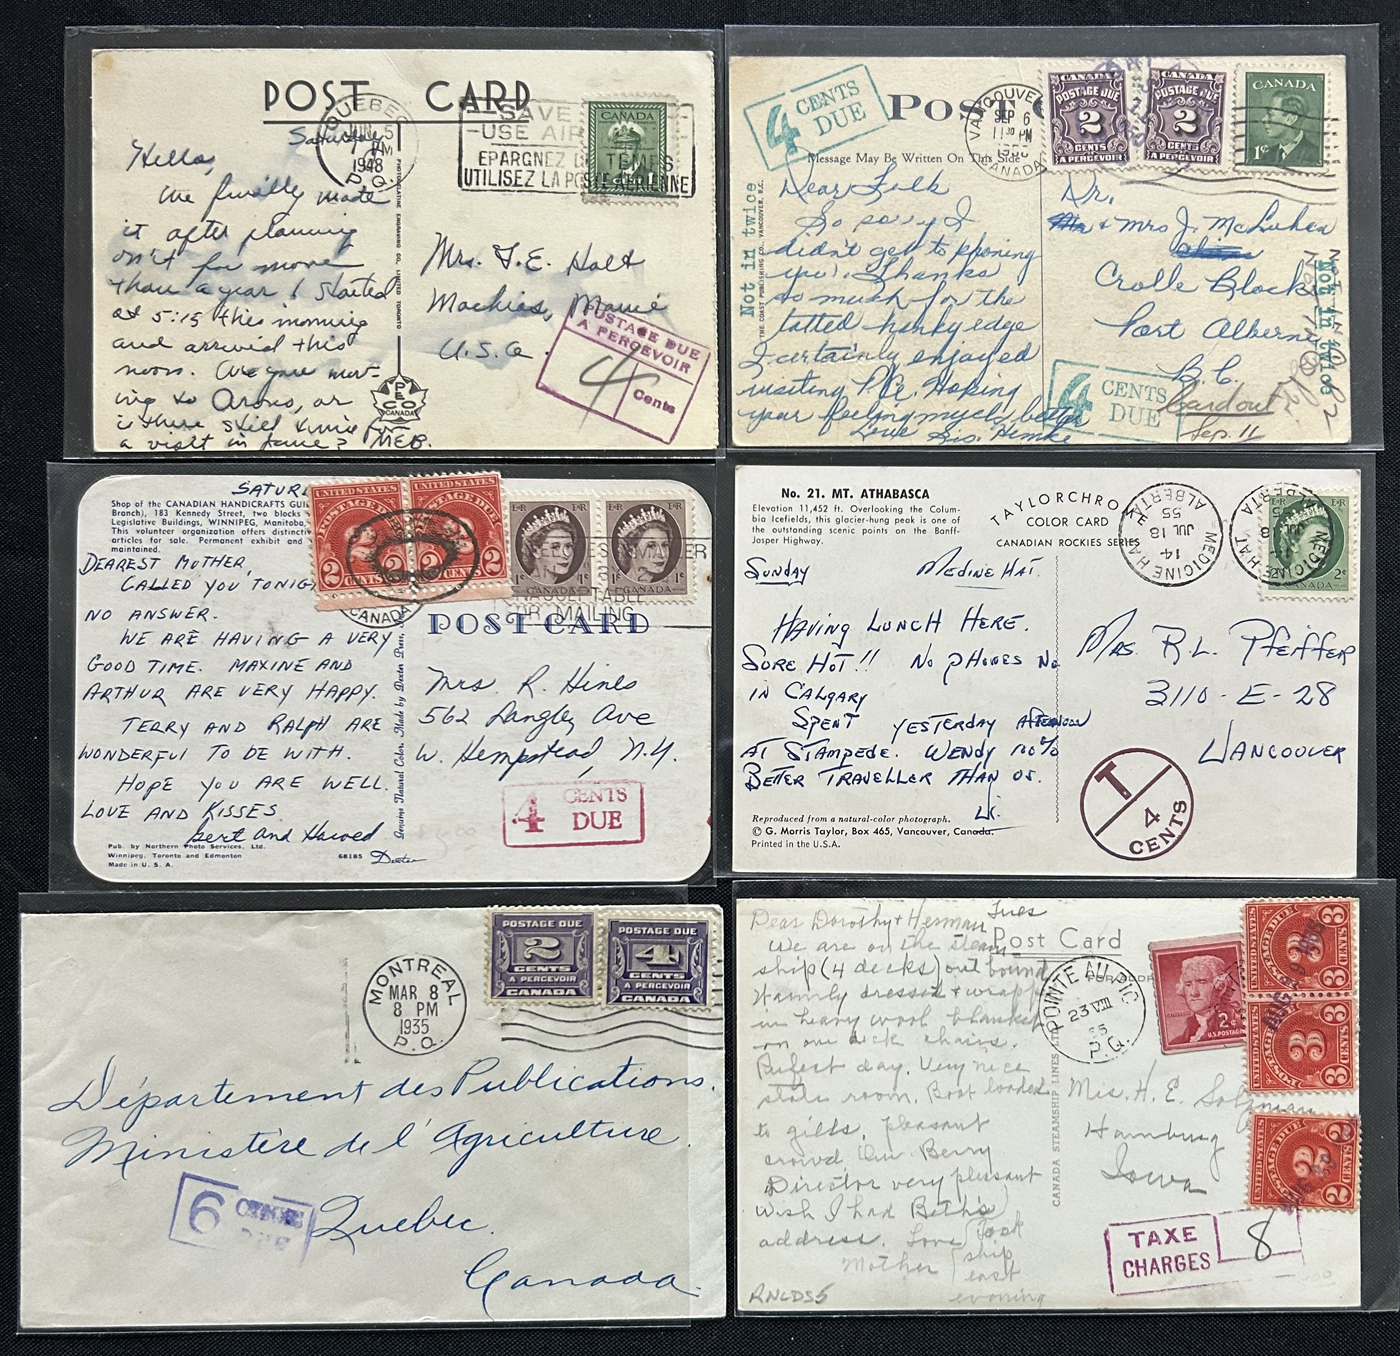 POST CARD
QUEBEC
JUN 5
PM
1948
P.Q.
SAVE
USE AIR
EPARGNEZ DU TEMPS
UTILISEZ LA POSTE AERIENNE
CANADA
Saturday
Hello,
We finally made
it after planning
on it for more
than a year! Started
at 5:15 this morning
and arrived this
noon. Are you mov-
ing to Orono, or
is there still time
a visit in June? MEB.
PHOTOGELATINE ENGRAVING CO. LIMITED TORONTO
PECO
CANADA
Mrs. F.E. Holt
Machias, Maine
U.S.A.
POSTAGE DUE
A PERCEVOIR
4 Cents
4 CENTS
DUE
POST C
VANCOUVER
SEP 6
11 30 PM
CANADA
CANADA
POSTAGE DUE
2
CENTS CENTS
A PERCEVOIR
CANADA
POSTAGE DUE
2
CENTS CENTS
A PERCEVOIR
CANADA
1¢
Message May Be Written On This Side
Not in twice
THE COAST PUBLISHING CO. VANCOUVER, B.C.
Dear Folk
So sorry I
didn't get to phoning
you. Thanks
so much for the
tatted hanky edge
I certainly enjoyed
visiting P.A. Hoping
your feeling much better
Love
Dr.
& Mrs J. McLuhen
Crolle Block
Port Alberni
B.C.
4 CENTS
DUE
Card out
Sep. 11
Not in twice
Shop of the CANADIAN HANDICRAFTS GUIL
Branch), 183 Kennedy Street, two blocks
Legislative Buildings, WINNIPEG, Manitoba,
This volunteer organization offers distinctiv
articles for sale. Permanent exhibit and
maintained.
SATUR
UNITED STATES
POSTAGE DUE
2 CENTS 2
UNITED STATES
POSTAGE DUE
2 CENTS 2
E II R
1¢
CANADA
E II R
1¢
CANADA
CANADA
FOR MAILING
POST CARD
DEAREST MOTHER,
CALLED YOU TONIG
NO ANSWER.
WE ARE HAVING A VERY
GOOD TIME. MAXINE AND
ARTHUR ARE VERY HAPPY.
TERRY AND RALPH ARE
WONDERFUL TO BE WITH.
HOPE YOU ARE WELL.
LOVE AND KISSES
Bert and Harold
Pub. by Northern Photo Services, Ltd.
Winnipeg, Toronto and Edmonton
Made in U. S. A.
68185 Dexter
Genuine Natural Color. Made by Dexter Press,
Mrs R. Hines
562 Langley Ave
W. Hempstead, N.Y.
4 CENTS
DUE
No. 21. MT. ATHABASCA
Elevation 11,452 ft. Overlooking the Colum-
bia Icefields, this glacier-hung peak is one of
the outstanding scenic points on the Banff-
Jasper Highway.
TAYLORCHROME
COLOR CARD
CANADIAN ROCKIES SERIES
MEDICINE HAT
14
JUL 18
55
ALBERTA
MEDICINE HAT
ALBERTA
E II R
2¢
SUNDAY
MEDINE HAT.
HAVING LUNCH HERE.
SURE HOT!! NO PHONES NO
IN CALGARY
SPENT YESTERDAY AFTERNOON
AT STAMPEDE. WENDY 100%
BETTER TRAVELLER THAN US.
Reproduced from a natural-color photograph.
© G. Morris Taylor, Box 465, Vancouver, Canada.
Printed in the U.S.A.
MRS. R.L. PFEIFFER
3110-E-28
VANCOUVER
T
4
CENTS
MONTREAL
MAR 8
8 PM
1935
P.Q.
POSTAGE DUE
2
CENTS
A PERCEVOIR
CANADA
POSTAGE DUE
4
CENTS
A PERCEVOIR
CANADA
Département des Publications.
Ministère de l'Agriculture.
Quebec.
Canada.
6 CENTS
DUE
Dear Dorothy + Herman Tues
Post Card
We are on the steam
ship (4 decks) outbound
Warmly dressed + wrapped
in heavy wool blankets
on our deck chairs.
Perfect day. Very nice
state room. Boat loaded
to gills. pleasant
crowd Our Berry
Director very pleasant
Wish I had Beth's
address. Love
Mother
Took
ship
east
evening
RNLDS5
CANADA STEAMSHIP LINES LTD.
POINTE AU PIC
23 VIII
55
P.Q.
2¢
U.S. POSTAGE
UNITED STATES
POSTAGE DUE
3 CENTS 3
UNITED STATES
POSTAGE DUE
3 CENTS 3
UNITED STATES
POSTAGE DUE
2 CENTS 2
Mrs. H. E. Salzman
Hamburg
Iowa
TAXE
CHARGES
8